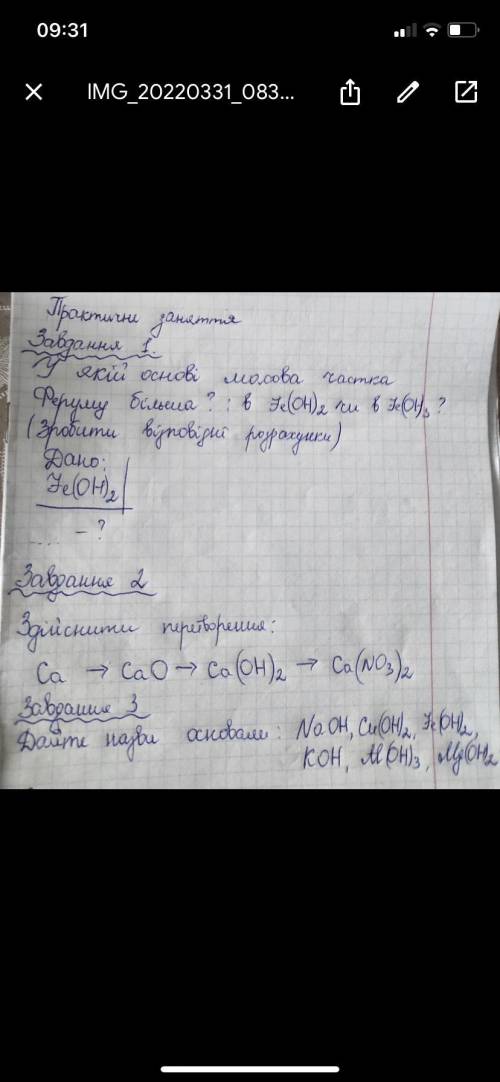 09:31
IMG_20220331_083...
Практичне заняття
Завдання 1.
У якій основі масова частка
Феруму більша? : в Fe(OH)₂ чи в Fe(OH)₃ ?
(Зробити відповідні розрахунки)
Дано:
Fe(OH)₂
.... – ?
Завдання 2
Здійснити перетворення:
Ca → CaO → Ca(OH)₂ → Ca(NO₃)₂
Завдання 3
Дайте назви основам: NaOH, Cu(OH)₂, Fe(OH)₂,
KOH, Al(OH)₃, Mg(OH)₂